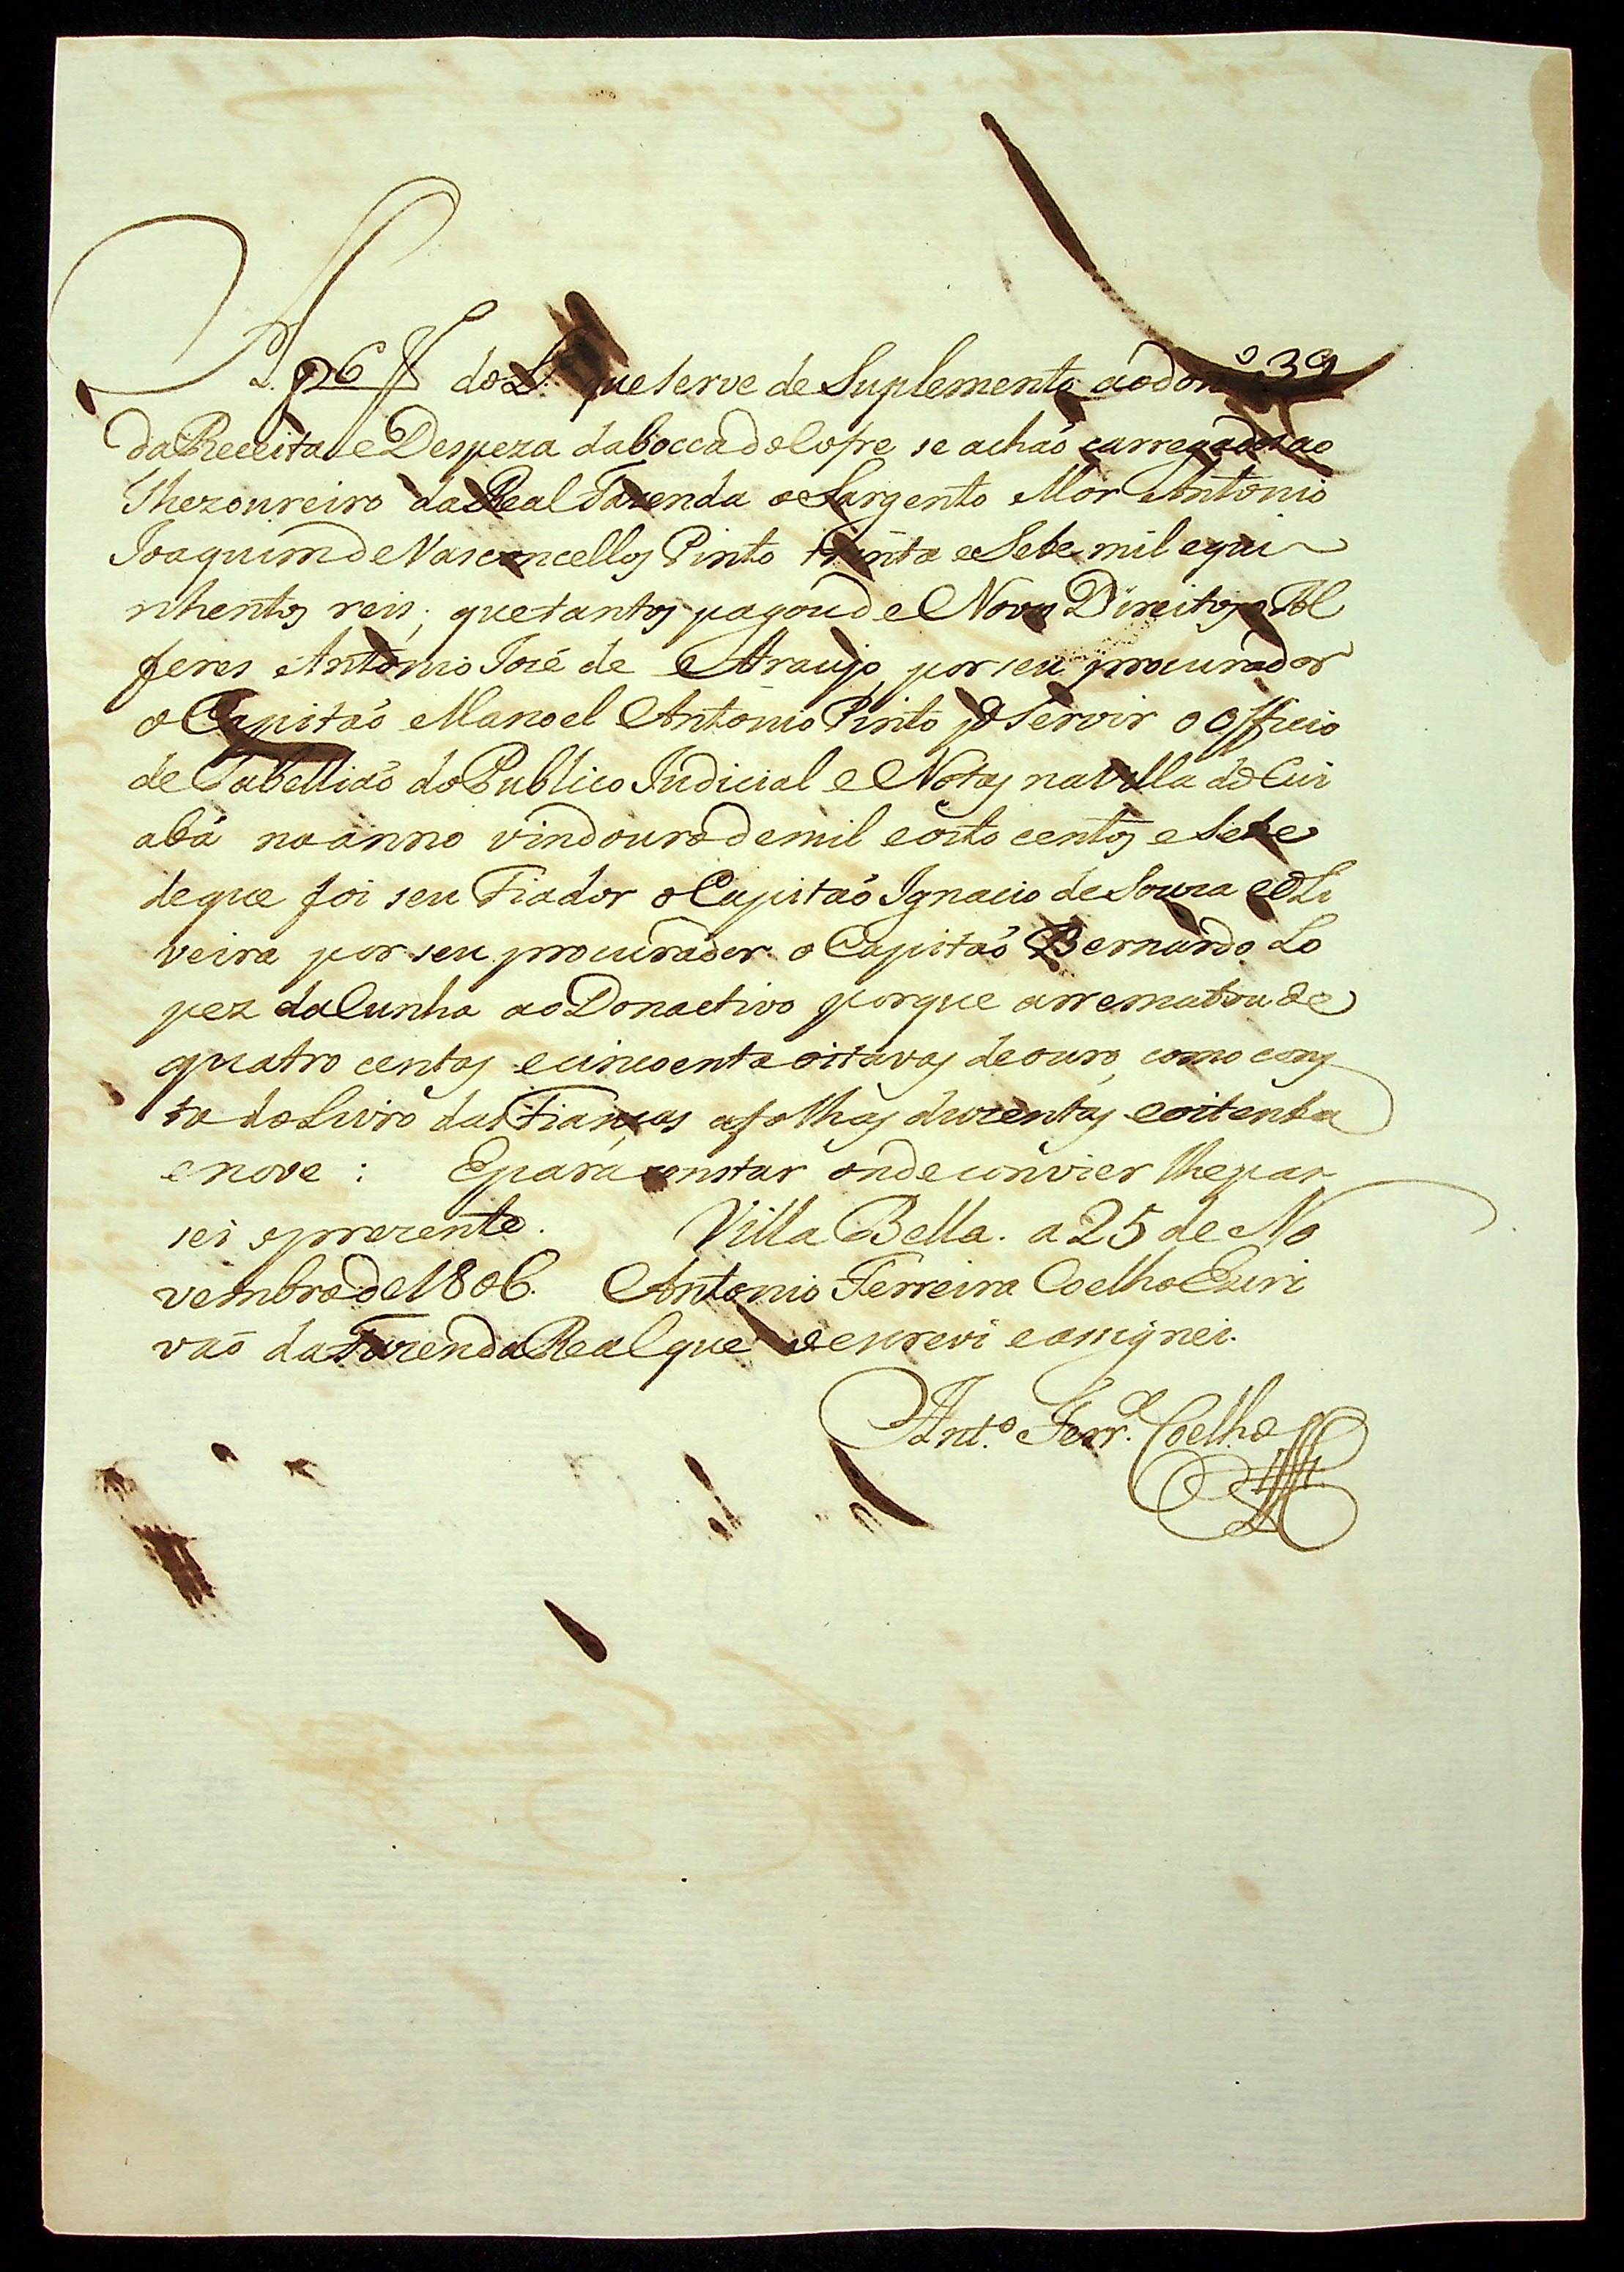 A f 26 do L.º que serve de Suplemento ao do n.º 39
da Receita e Despeza da bocca do Cofre se achaõ carregados ao
Thezoureiro da Real Fazenda o Sargento Mor Antonio
Joaquim de Vasconcellos Pinto trinta e Sete mil e qui
nhentos reis, que tantos pagou de Novos Direitos o Al
feres Antonio José de Araujo, por seu procurador
o Capitaõ Manoel Antonio Pinto pª Servir o Officio
de Tabelliaõ do Publico Judicial e Notas na Villa do Cui
abá no anno vindouro de mil e oito centos e Sete
de que foi seu Fiador o Capitaõ Ignacio de Souza e Oli
veira por seu procurador o Capitaõ Bernardo Lo
pez da Cunha ao Donactivo porque arrematou de
quatro centas e cincoenta oitavas de ouro, como cons
ta do Livro das Fianças a folhas duzentas e oitenta
e nove : E para constar onde convier lhe pas
sei o prezente. Villa Bella. a 25 de No
vembro de 1806. Antonio Ferreira Coelho Escri
vaõ da Fazenda Real que o escrevi e assignei.
Ant.º Ferr.ª Coelho